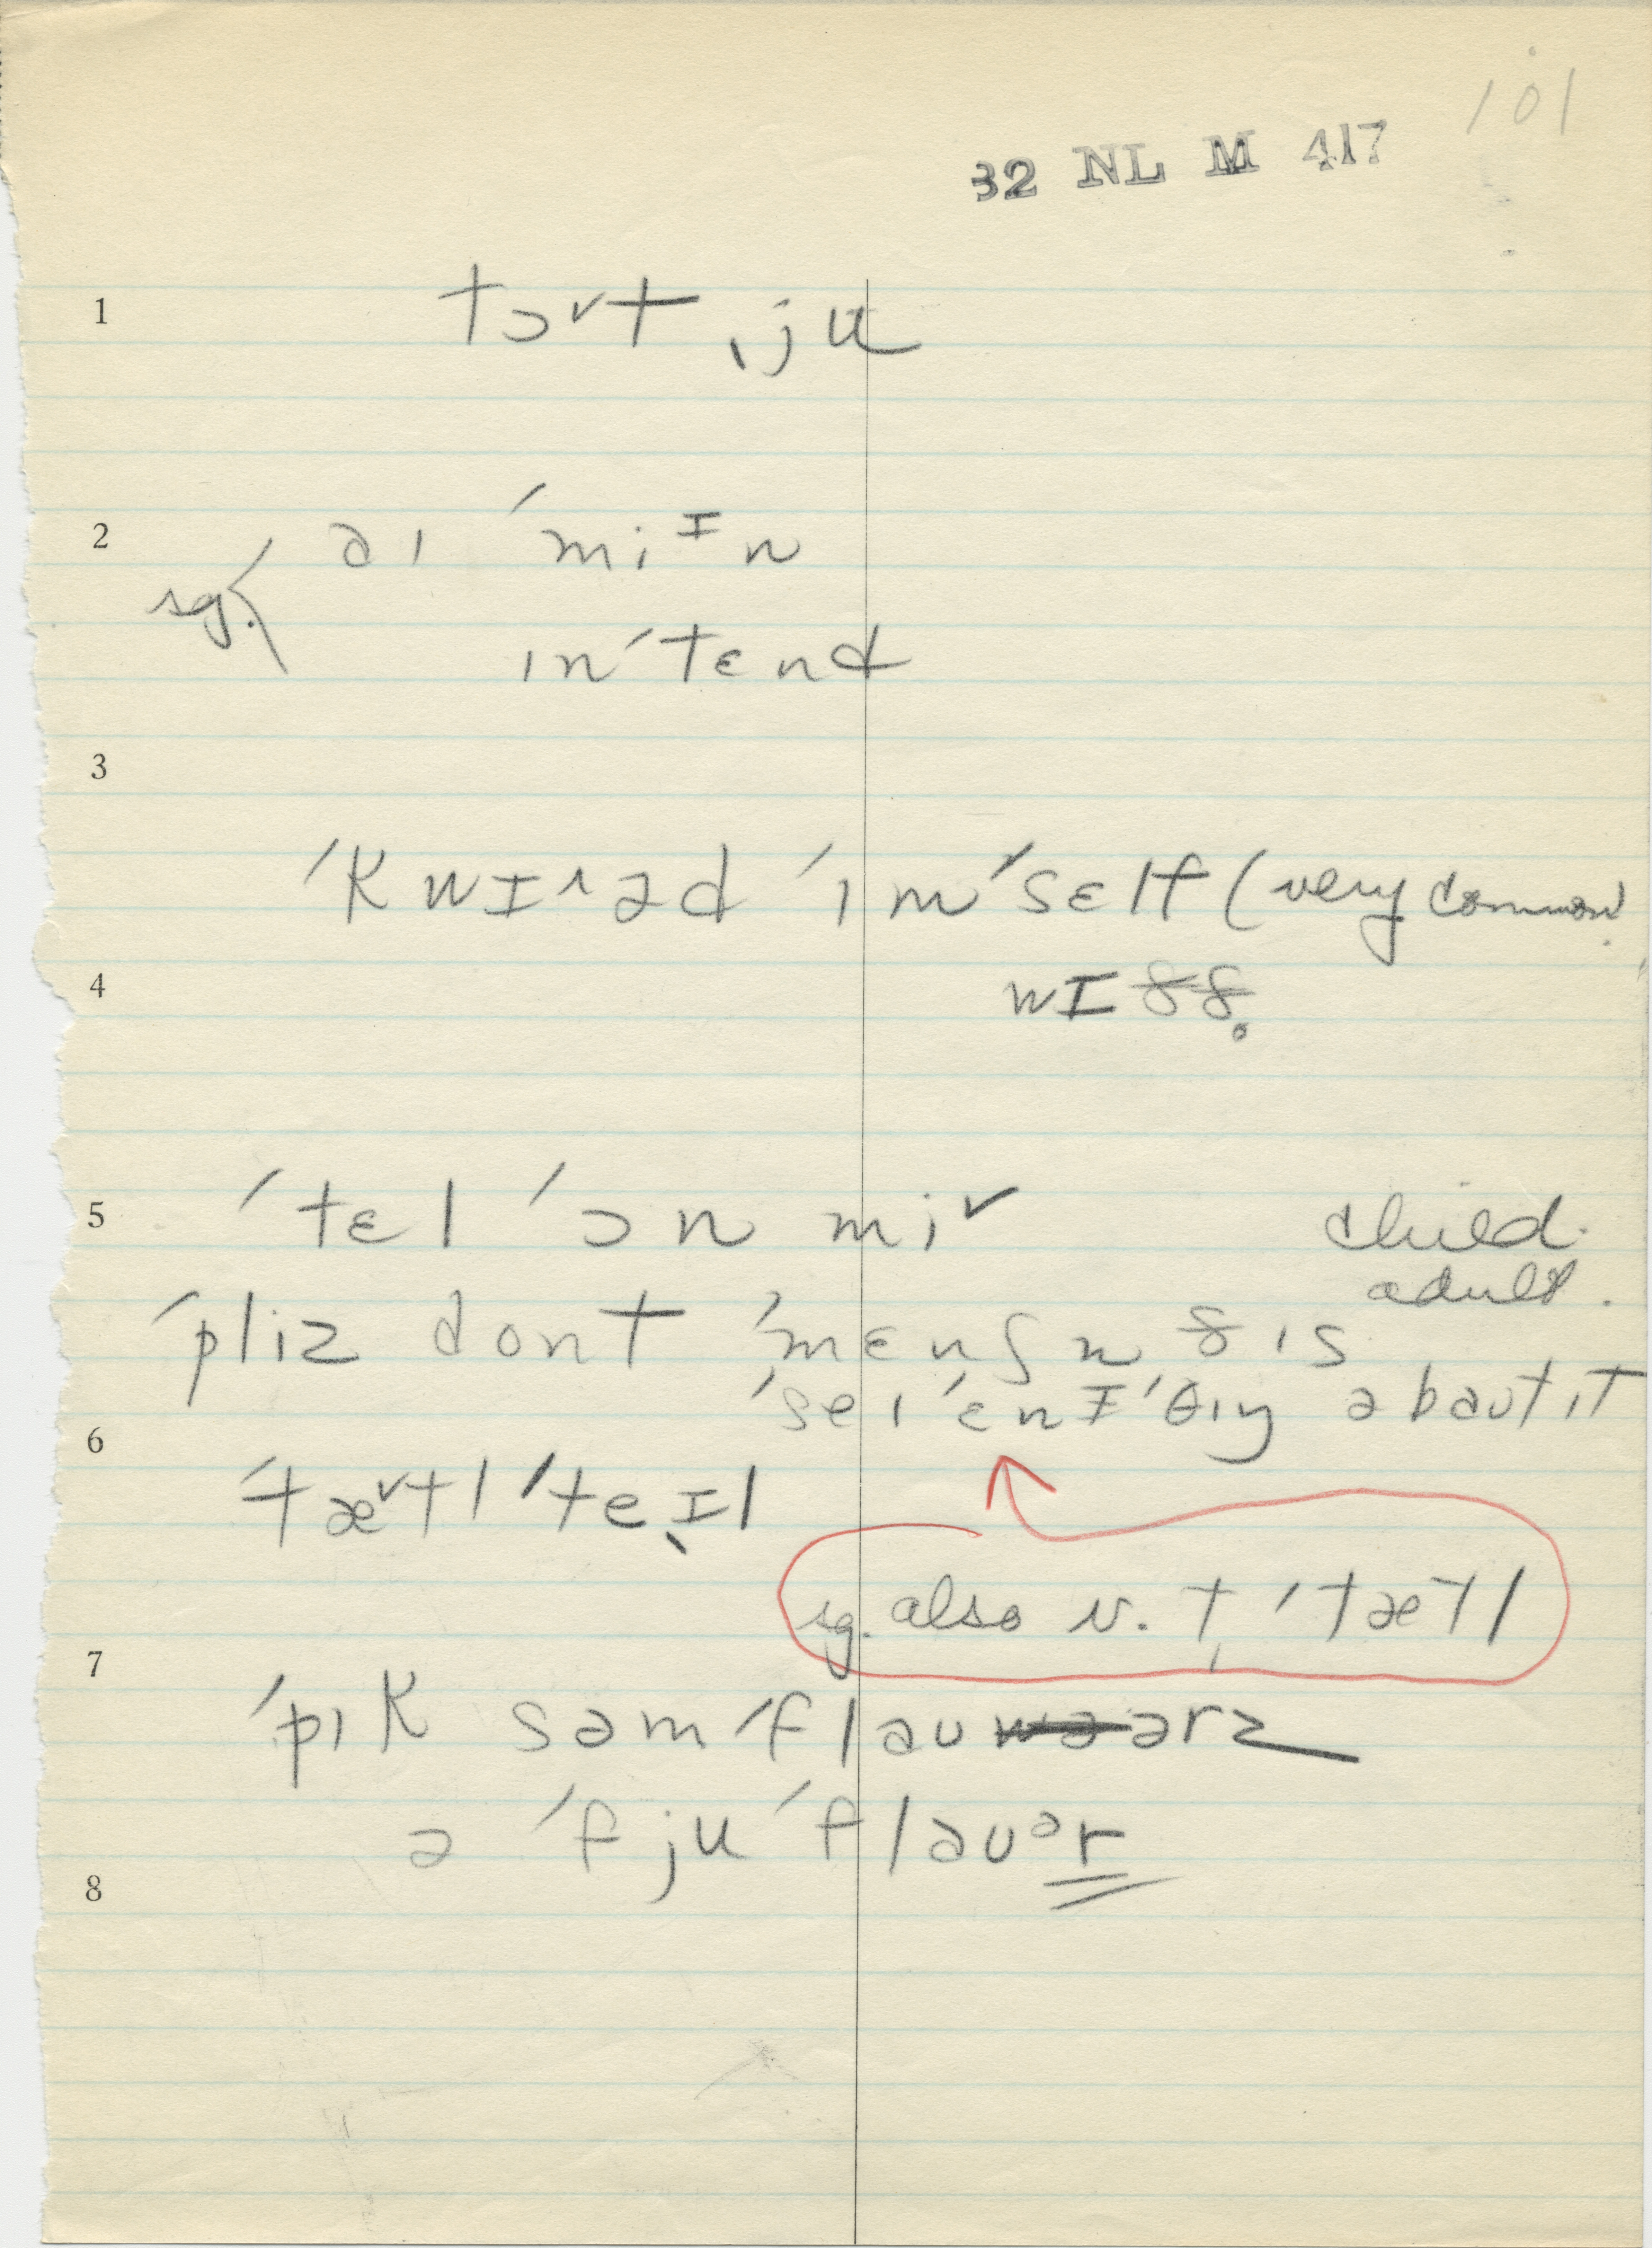 101
32 NL M 417
1 tɔ˅t ˌju
2 aɪ ˈmiᴵn
sg.
ɪnˈtɛnd
3
ˈkwɪ˄əd ˈɪmˈsɛlf (very common
4 wɪðð̥
5 ˈtɛl ˈɔn mi˅ child.
adult.
ˈpliz dont ˈmɛnʃn ðɪs
ˈseɪˈɛnɪˈθɪŋ əbaʊt ɪt
6
ˈtæ˅tl ˈteɪ̞l
sg. also v. t, ˈtætl
7
ˈpɪk səm ˈflaʊərz
ə ˈfju ˈflaʊᵊr
8